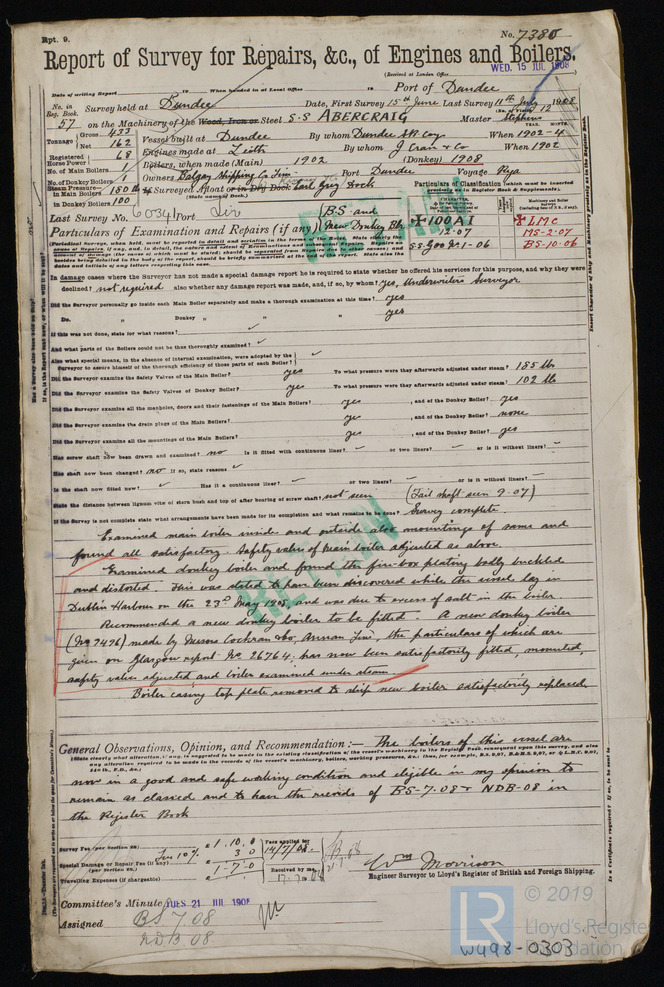 Rpt. 9.
No. 7380
Report of Survey for Repairs, &c., of Engines and Boilers.
(Received at London Office WED. 15 JUL 1908
Date of writing Report 19 When handed in at Local Office 19 Port of Dundee
No. in Reg. Book. 57 Survey held at Dundee Date, First Survey 15th June Last Survey 11th July 1908
on the Machinery of the Wood, Iron or Steel S.S ABERCRAIG Master Stephens
Tonnage Gross 433 Net 162 Vessel built at Dundee By whom Dundee SB Coy When 1902-4
Registered Horse Power 68 Engines made at Leith By whom J Cran & Co When 1902
No. of Main Boilers 1 Boilers, when made (Main) 1902 (Donkey) 1908
No. of Donkey Boilers 1 Owners Balgay Shipping Co Lim. Port Dundee Voyage
Steam Pressure in Main Boilers 180 lb If Surveyed Afloat or in Dry Dock Earl Grey Dock
in Donkey Boilers 100 (State name of Dock.)
Particulars of Classification (which must be inserted precisely as in Register Book & Supplements).
Last Survey No. 6034 Port
Particulars of Examination and Repairs (if any) BS and New Donkey Blr
100A1 LMC
12.07 MS-2.07
BS-10.06
In damage cases where the Surveyor has not made a special damage report he is required to state whether he offered his services for this purpose, and why they were
declined? not required also whether any damage report was made, and, if so, by whom? yes, Underwriters Surveyor
Did the Surveyor personally go inside each Main Boiler separately and make a thorough examination at this time? yes
Do. " Donkey " " " yes
If this was not done, state for what reasons?
And what parts of the Boilers could not be thus thoroughly examined?
Also what special means, in the absence of internal examination, were adopted by the
Surveyor to assure himself of the thorough efficiency of those parts of each Boiler?
Did the Surveyor examine the Safety Valves of the Main Boiler? yes To what pressure were they afterwards adjusted under steam? 185 lb
Did the Surveyor examine the Safety Valves of Donkey Boiler? yes To what pressure were they afterwards adjusted under steam? 102 lb
Did the Surveyor examine all the manholes, doors and their fastenings of the Main Boilers? yes , and of the Donkey Boiler? yes
Did the Surveyor examine the drain plugs of the Main Boilers? yes , and of the Donkey Boiler? none
Did the Surveyor examine all the mountings of the Main Boilers? yes , and of the Donkey Boiler? yes
Has screw shaft now been drawn and examined? no Is it fitted with continuous liner? - or two liners? - or is it without liners? -
Has shaft now been changed? no If so, state reasons
Is the shaft now fitted new? Has it a continuous liner? or two liners? or is it without liners?
State the distance between lignum vitæ of stern bush and top of after bearing of screw shaft? not seen (Tail shaft seen 9.07)
If the Survey is not complete state what arrangements have been made for its completion and what remains to be done? Survey complete.
Examined main boiler inside and outside also mountings of same and
found all satisfactory. Safety valve of main boiler adjusted as above.
Examined donkey boiler and found the fire-box plating badly buckled
and distorted. This was stated to have been discovered while the vessel lay in
Dublin Harbour on the 23rd May 1908, and was due to excess of salt in the boiler.
Recommended a new donkey boiler to be fitted. A new donkey boiler
(No 7496) made by Messrs Cochran &Co Annan Lim, the particulars of which are
given on Glasgow report No 26764, has now been satisfactorily fitted, mounted,
safety valve adjusted and boiler examined under steam.
Boiler casing top plate removed to ship new boiler satisfactorily replaced.
RETAIN
RETAIN
General Observations, Opinion, and Recommendation:— The boilers of this vessel are
now in a good and safe working condition and eligible in my opinion to
remain as classed and to have the records of BS-7.08 & NDB-08 in
the Register Book
Survey Fee (per Section 28.) £ 1.10.0 Fees applied for 14/7/08
Special Damage or Repair Fee (if any) (per Section 28.) Less 10% 3 0
1-7-0 Received by me,
Travelling Expenses (if chargeable) £ 17.7.08
Wm Morrison
Engineer Surveyor to Lloyd's Register of British and Foreign Shipping.
Committee's Minute TUES. 21 JUL 1908
Assigned BS 7.08
NDB.08
LR © 2019
Lloyd's Register
Foundation
W498-0303